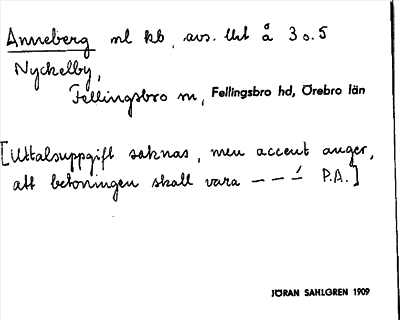 Anneberg nl kb, avs. lht å 3 o. 5
Nyckelby,
Fellingsbro sn, Fellingsbro hd, Örebro län
[Uttalsuppgift saknas, men accent anger,
att betoningen skall vara – – –́ P.A.]
JÖRAN SAHLGREN 1909